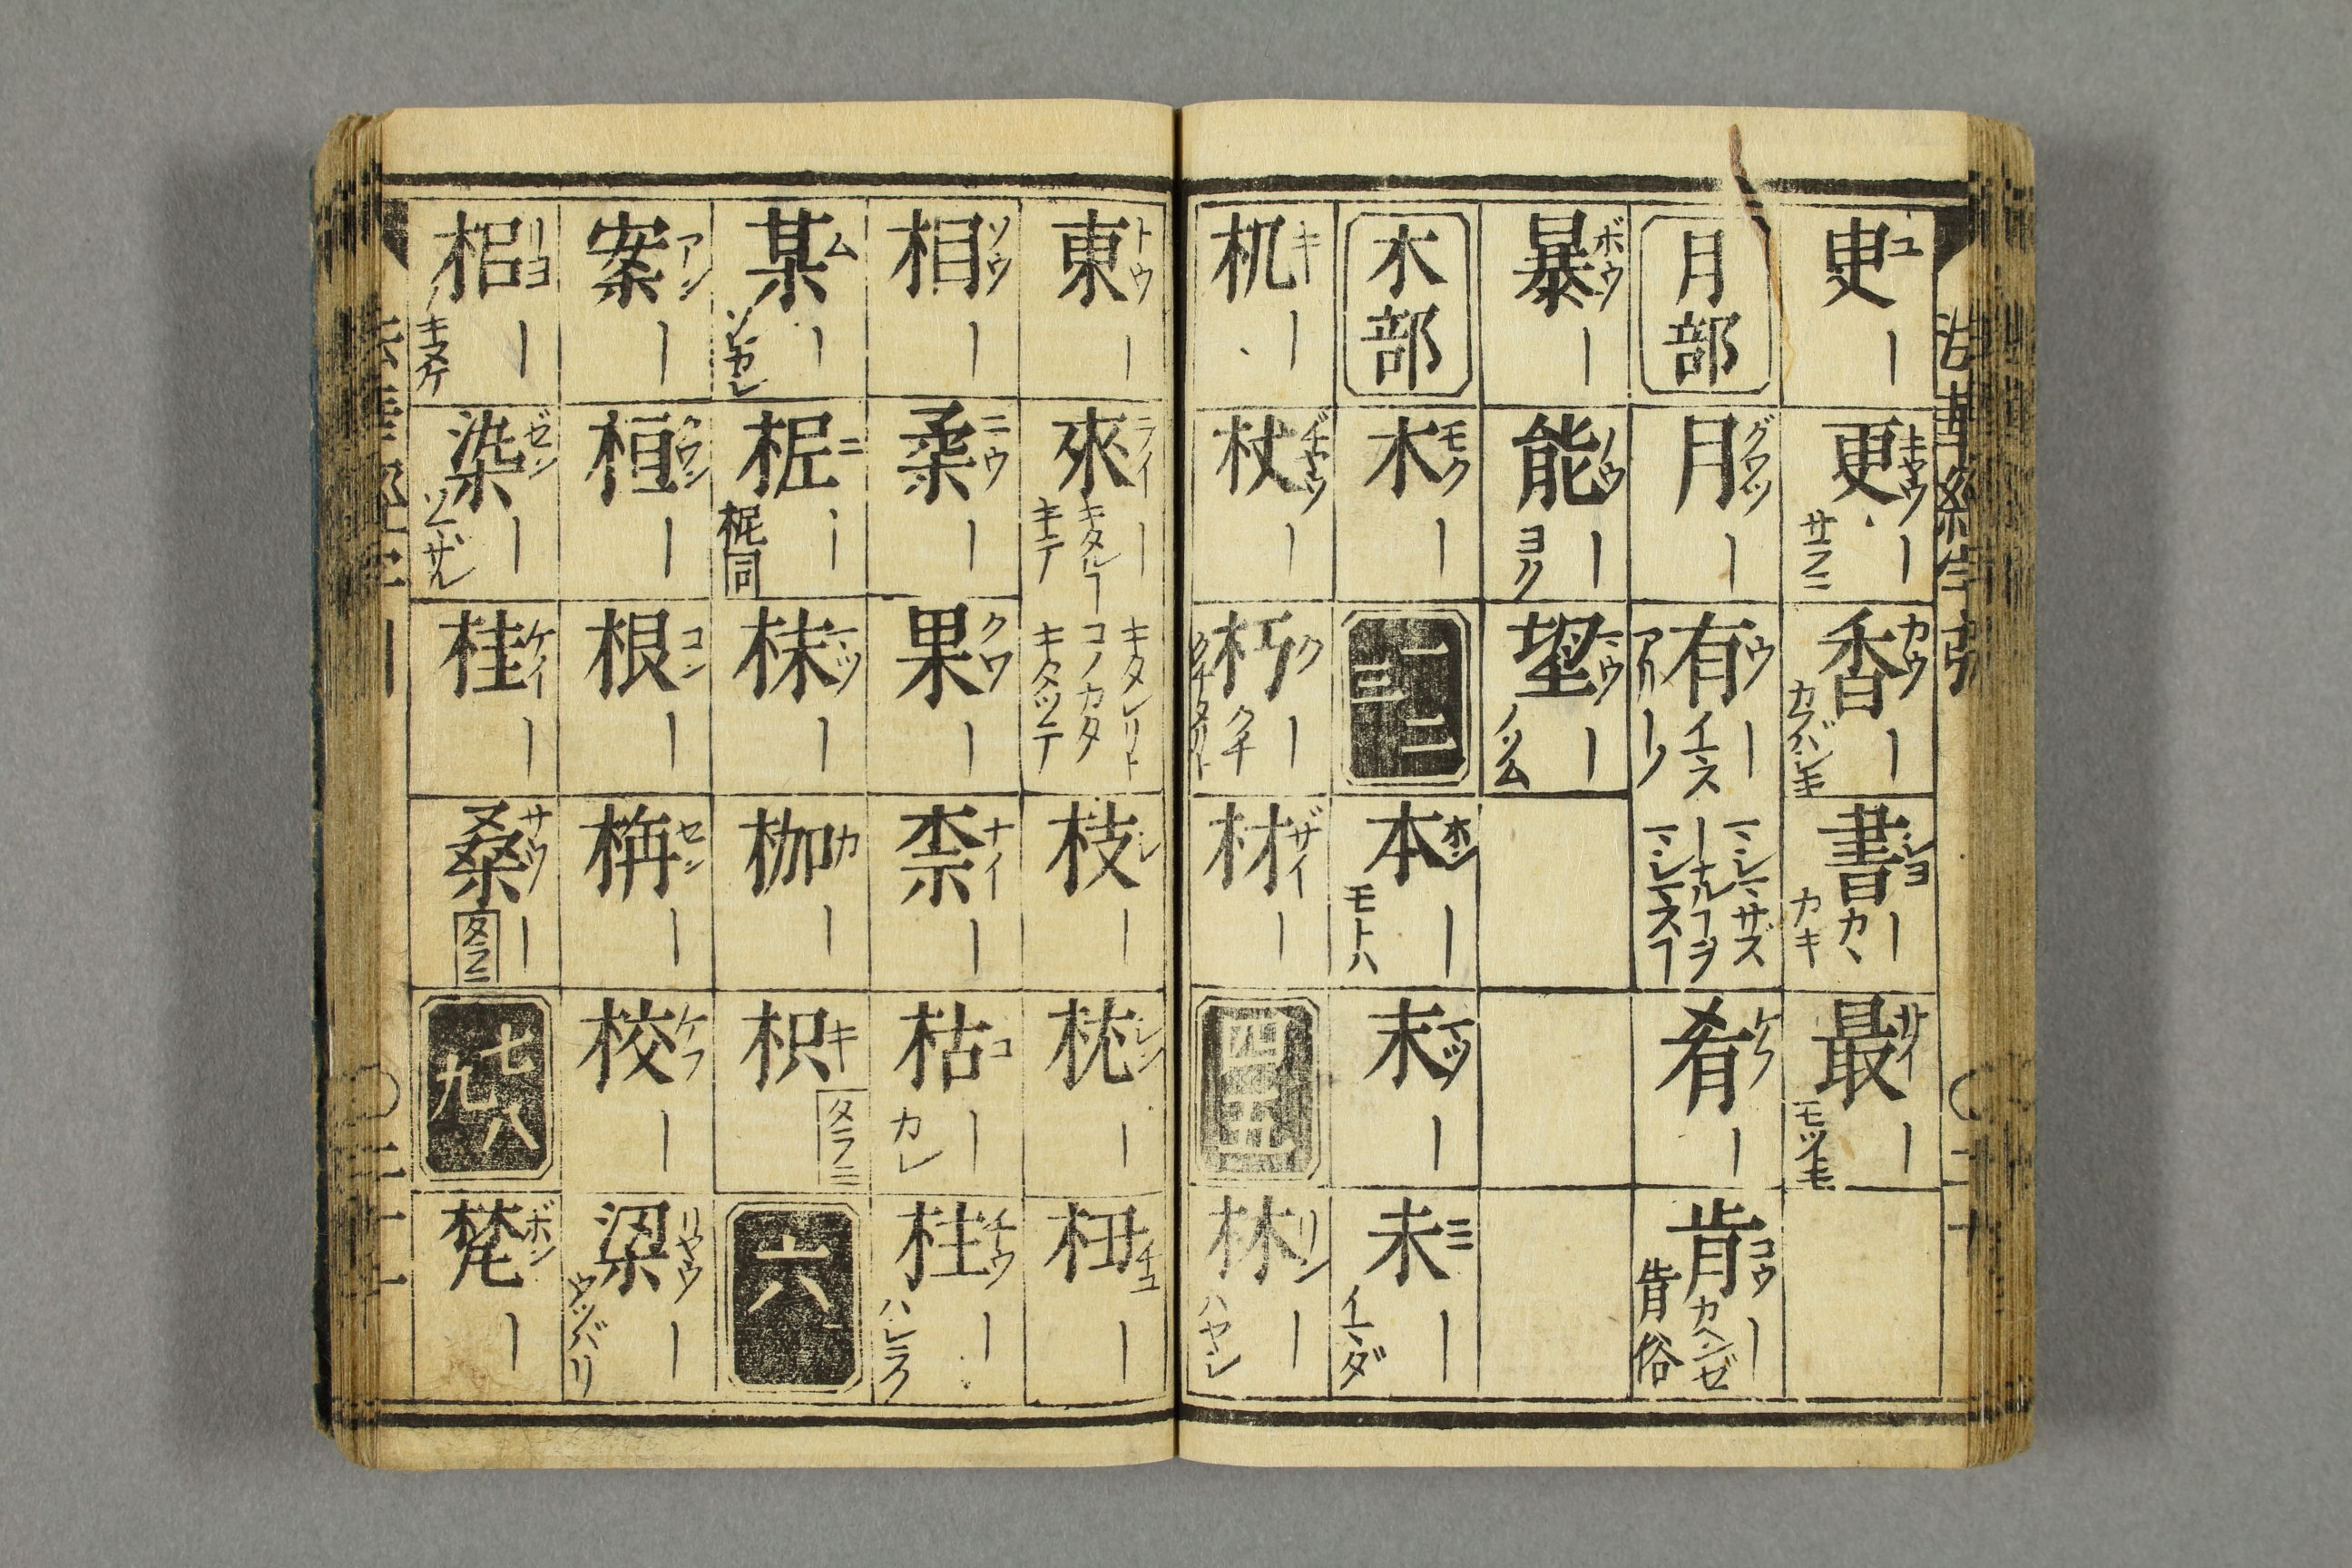 臾 ユ ｜
更 キヤウ ｜ サラニ
香 カウ ｜ カウバシキ
書 シヨ ｜ カヽ カキ
最 サイ ｜ モツモ
月部
月 グワツ ｜
有 ウ ｜
肴 ケフ ｜
肯 コウ ｜ カヘンゼ 肎俗
暴 ボウ ｜
能 ノウ ｜ ヨク
望 ｜ ノツム
木部
木 モク ｜
一二三
本 ホン ｜ モトハ
末 マツ ｜
未 ミ ｜ イマダ
机 キ ｜
杖 ヂヤウ ｜
朽 ク ｜ クチ
材 ザイ ｜
四五
林 リン ｜ ハヤシ
東 トウ ｜
來 ライ ｜ キタル キテ キタレリト コノカタ キタツテ
枝 シ ｜
枕 シン ｜
杻 チユ ｜
相 ソウ ｜
柔 ニウ ｜
果 クワ ｜
柰 ナイ ｜
枯 コ ｜ カレ
柱 チウ ｜ ハシラ
某 ム ｜ ソレガシ
柅 ニ ｜ 同
枺 マツ ｜
枷 カ ｜
枳 キ タラニ
六
案 アン ｜
桓 クワン ｜
根 コン ｜
栴 セン ｜
校 ケフ ｜
梁 リヤウ ｜ ウツバリ
梠 リヨ ｜ ノキスケ
染 ゼン ｜ ソムザル
桂 ケイ ｜
桑 サウ ｜ タラニ
七八九
梵 ボン ｜